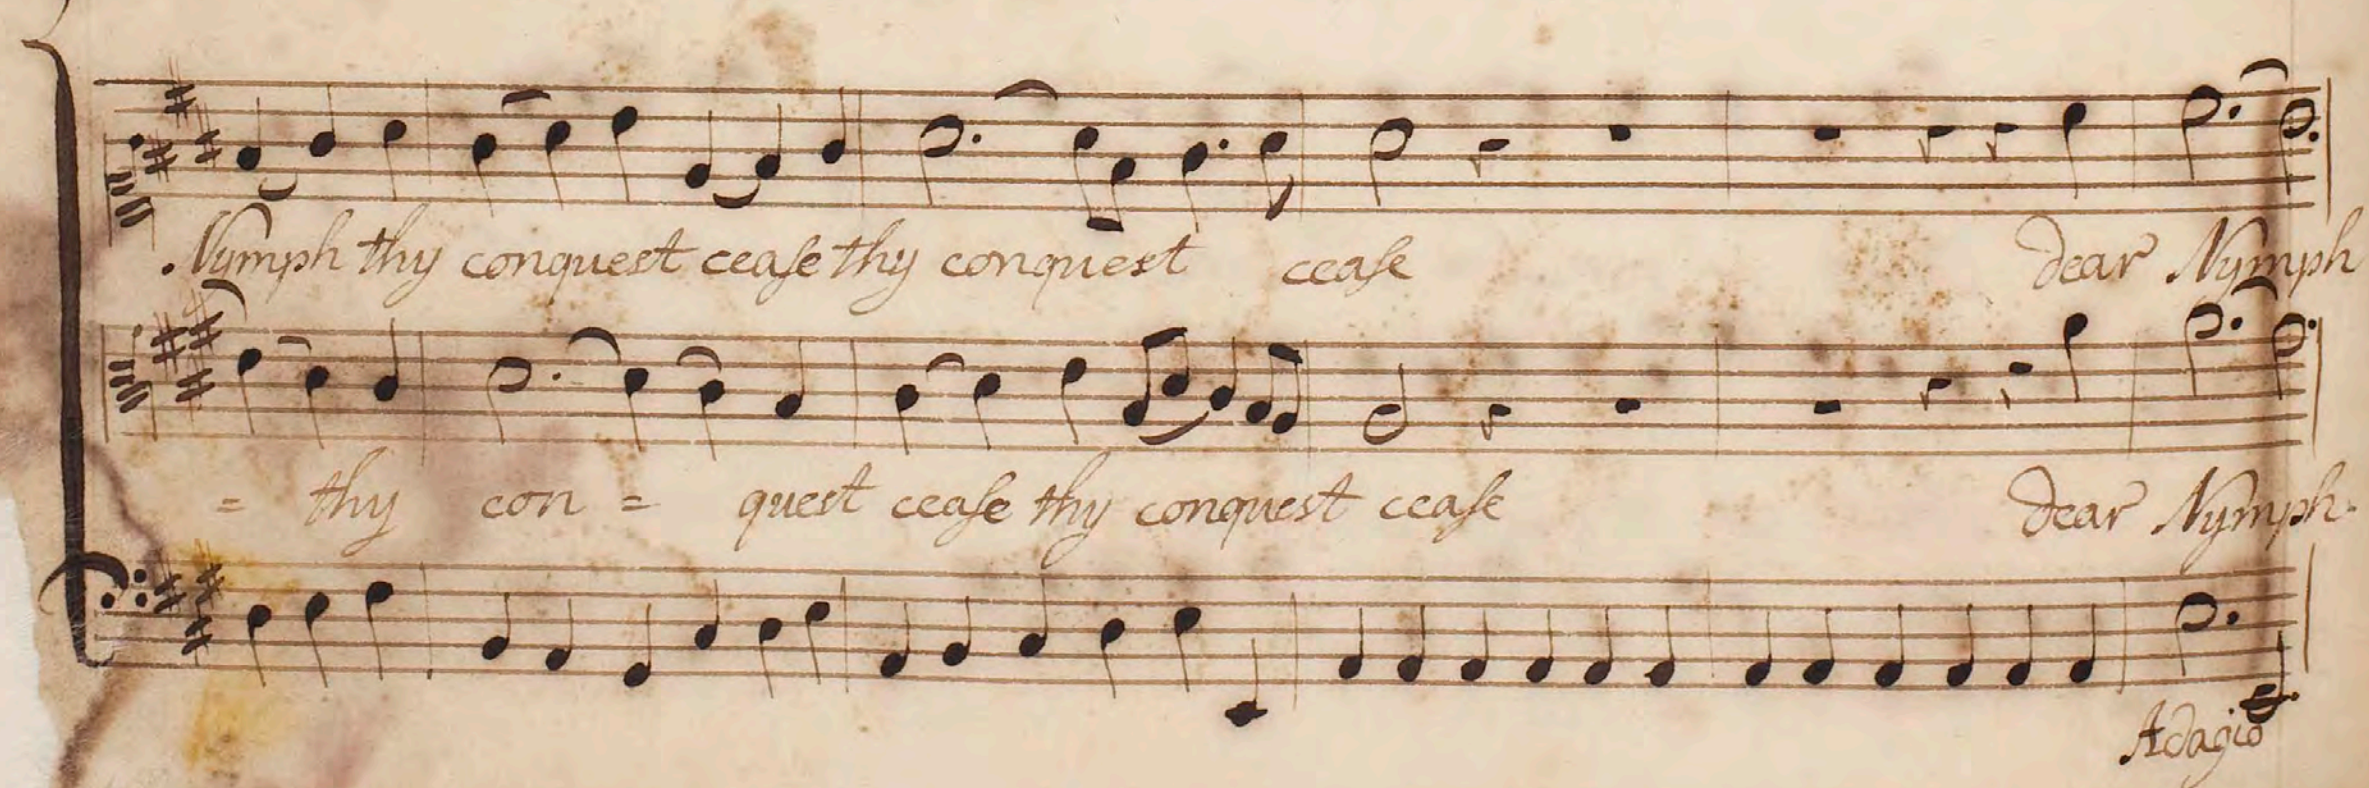 Nymph thy conquest ceaſe thy conquest ceaſe dear Nymph
= thy con = quest ceaſe thy conquest ceaſe dear Nymph
Adagio